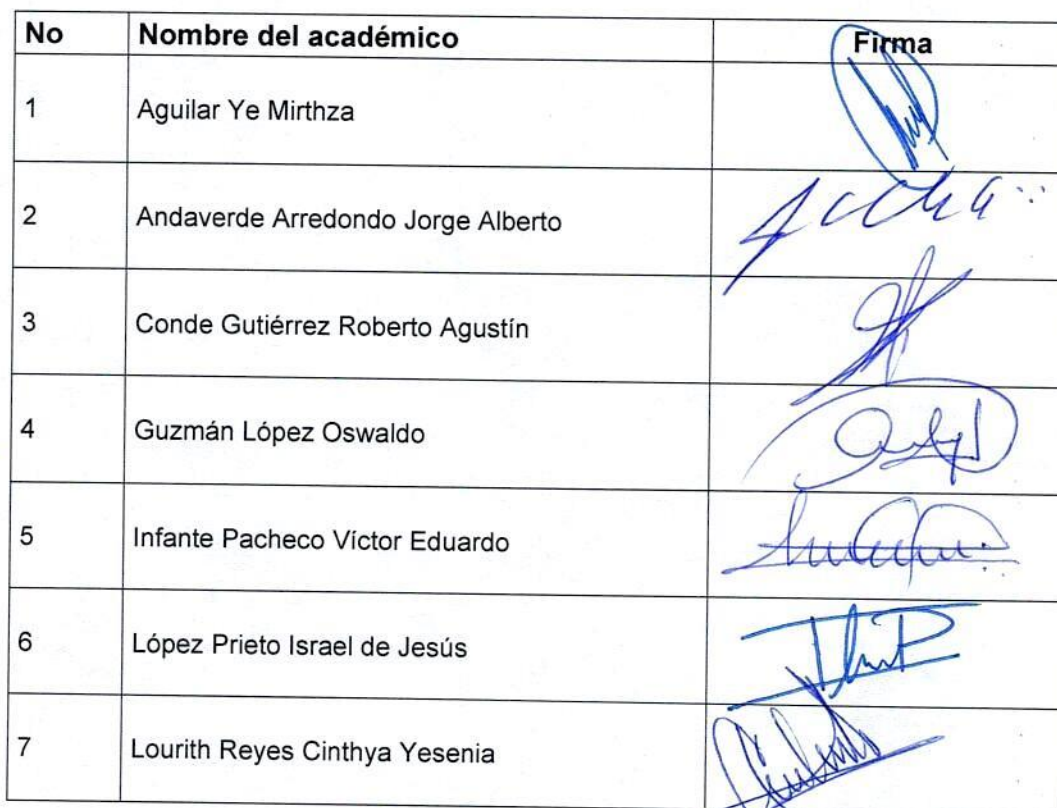 No Nombre del académico Firma
1 Aguilar Ye Mirthza
2 Andaverde Arredondo Jorge Alberto
3 Conde Gutiérrez Roberto Agustín
4 Guzmán López Oswaldo
5 Infante Pacheco Víctor Eduardo
6 López Prieto Israel de Jesús
7 Lourith Reyes Cinthya Yesenia